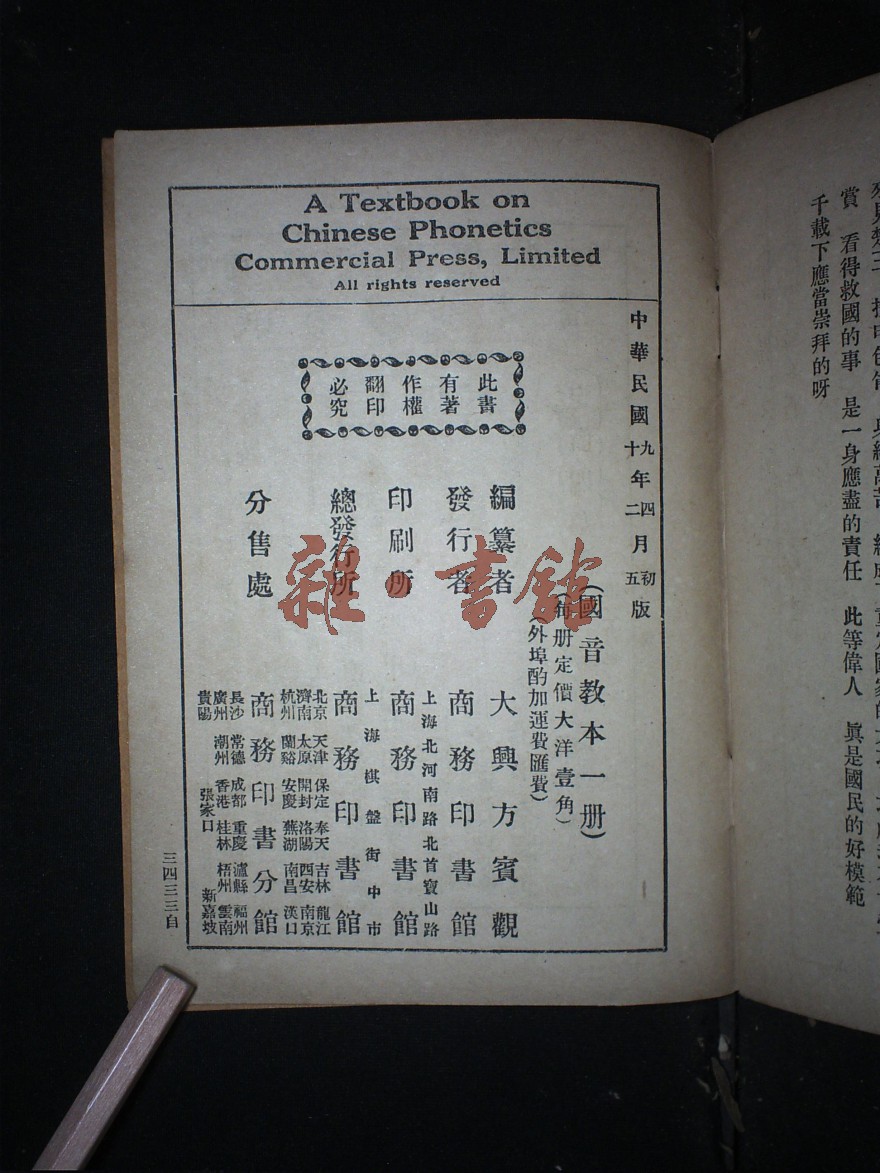 賞 看得救國的事 是一身應盡的責任 此等偉人 眞是國民的好模範
千載下應當崇拜的呀
A Textbook on
Chinese Phonetics
Commercial Press, Limited
All rights reserved
中華民國九十年四二月初五版
此書
有著
作權
翻印
必究
(國音教本一册)
(每册定價大洋壹角)
(外埠酌加運費匯費)
編纂者 大興方賓觀
發行者 商務印書館
上海北河南路北首寶山路
印刷所 商務印書館
上海棋盤街中市
總發行所 商務印書館
北京 天津 保定 奉天 吉林 龍江
濟南 太原 開封 洛陽 西安 南京
杭州 蘭谿 安慶 蕪湖 南昌 漢口
分售處 商務印書分館
長沙 常德 成都 重慶 瀘縣 福州
廣州 潮州 香港 桂林 梧州 雲南
貴陽 張家口 新嘉坡
三四三三自
雜·書館